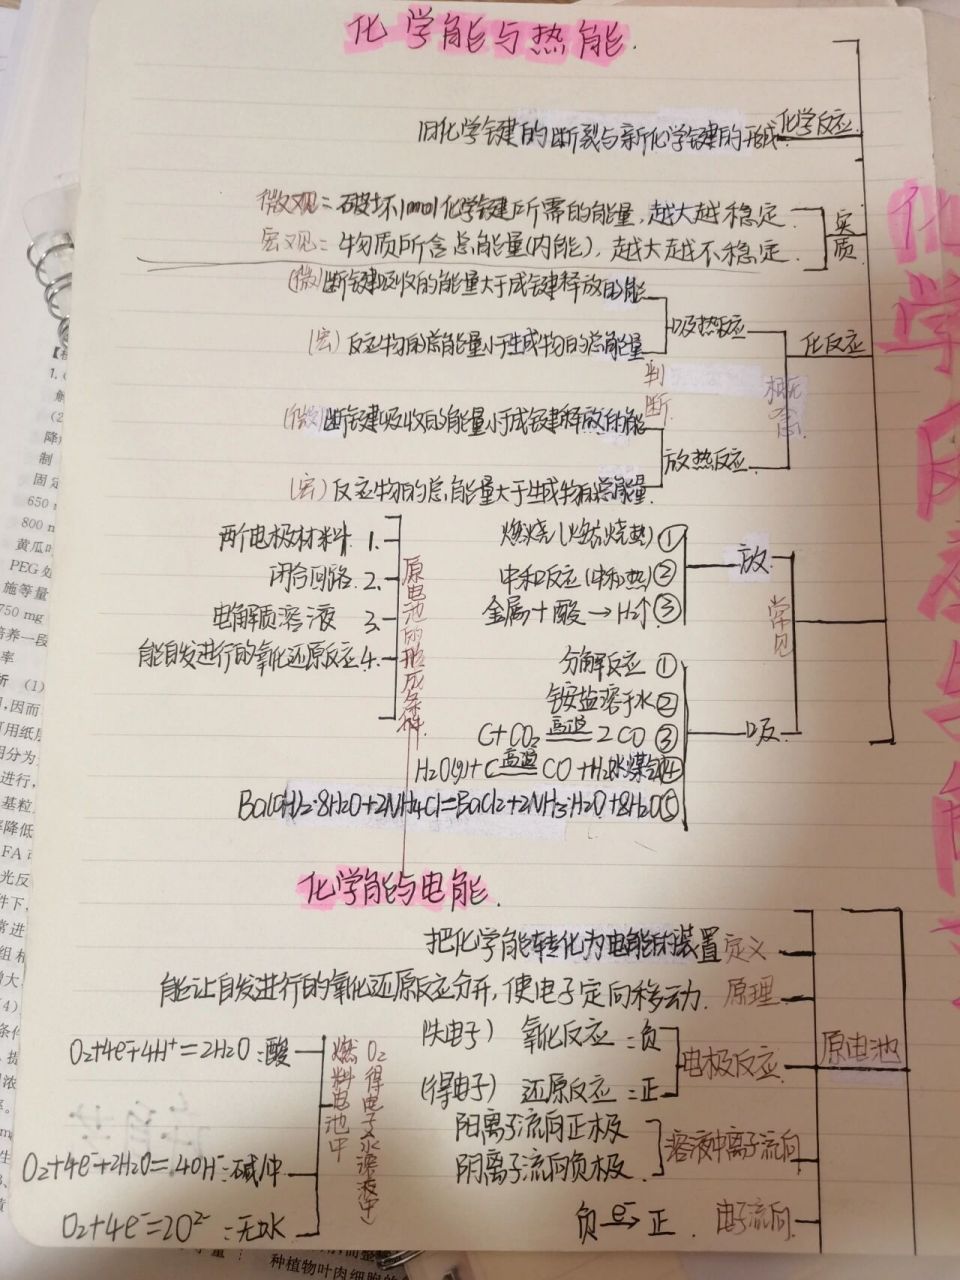 化学能与热能.
旧化学键的断裂与新化学键的形成 化学反应
微观：破坏1mol化学键所需的能量，越大越稳定
宏观：物质所含总能量(内能)，越大越不稳定
实质
(微)断键吸收的能量大于成键释放的能
(宏)反应物的总能量小于生成物的总能量
吸热反应
化反应
判断
概念
(微)断键吸收的能量小于成键释放的能
(宏)反应物的总能量大于生成物总能量
放热反应
两个电极材料 1.
闭合回路 2.
电解质溶液 3.
能自发进行的氧化还原反应 4.
原电池的形成条件
燃烧(燃烧热) ①
中和反应(中和热) ②
金属+酸→H2↑ ③
放
常见
分解反应 ①
铵盐溶于水 ②
C+CO2 高温 2CO ③
H2O(g)+C 高温 CO+H2水煤气 ④
Ba(OH)2·8H2O+2NH4Cl=BaCl2+2NH3·H2O+8H2O ⑤
吸
化学能与电能.
把化学能转化为电能的装置 定义
能让自发进行的氧化还原反应分开，使电子定向移动. 原理
(失电子) 氧化反应：负
(得电子) 还原反应：正
电极反应
原电池
阳离子流向正极
阴离子流向负极
溶液中离子流向
负 e⁻→ 正. 电子流向
O2+4e⁻+4H⁺=2H2O：酸
O2+4e⁻+2H2O=4OH⁻：碱/中
O2+4e⁻=2O²⁻：无水
燃料电池中
O2得电子